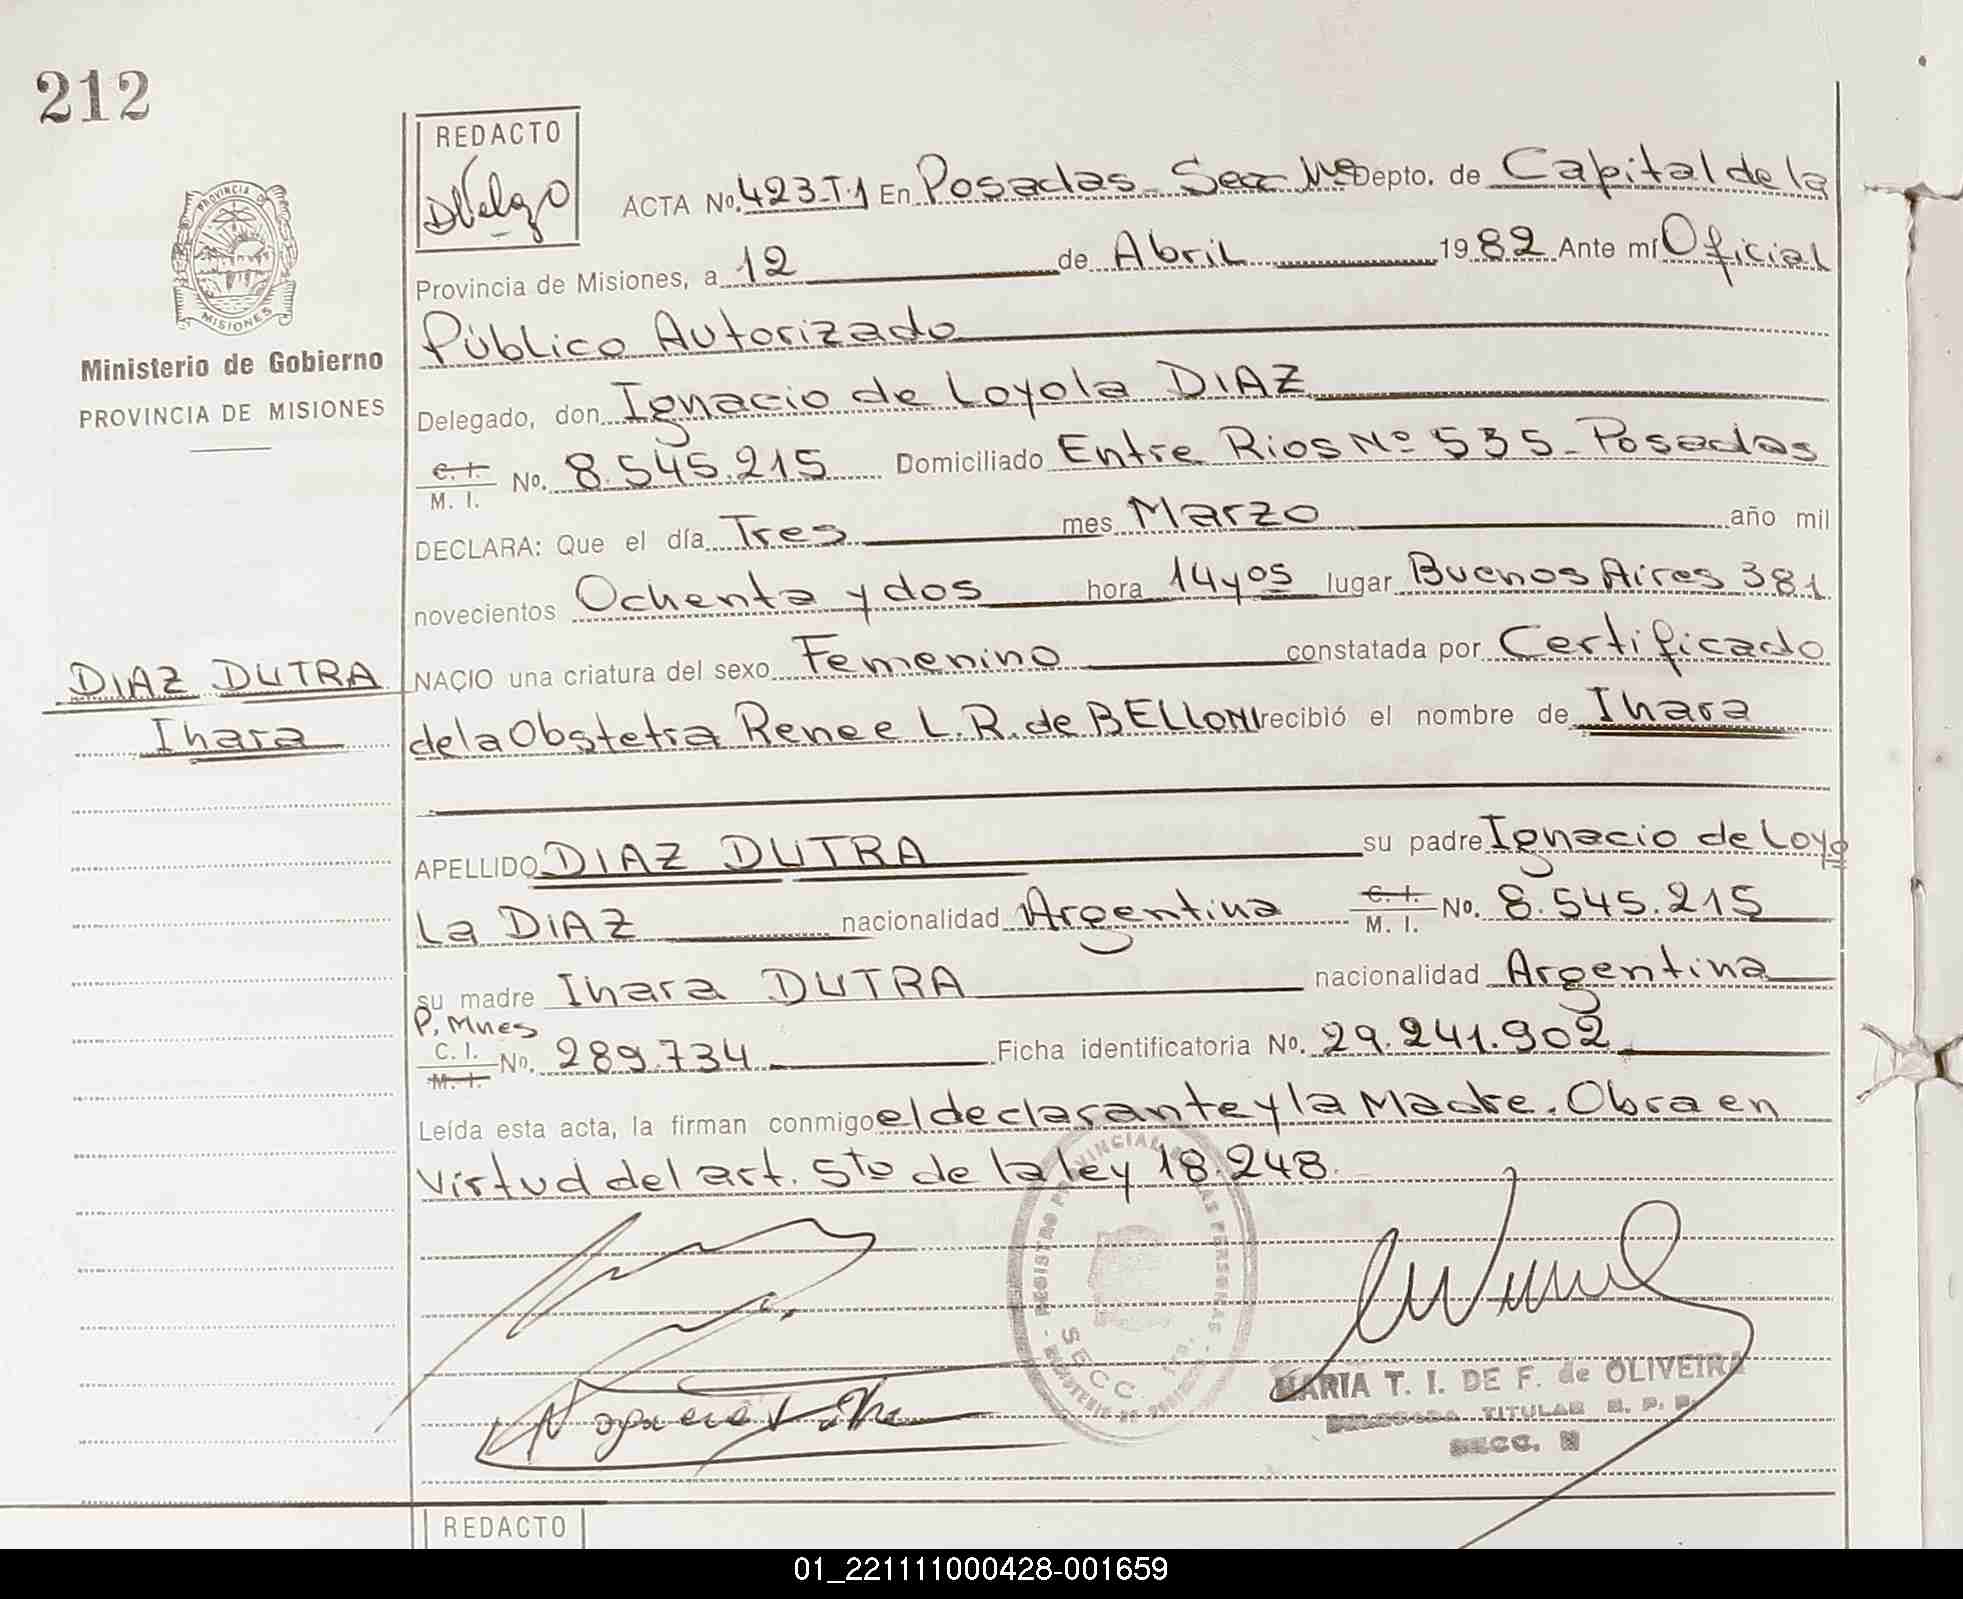 212
REDACTO
PROVINCIA DE
MISIONES
Ministerio de Gobierno
PROVINCIA DE MISIONES
ACTA No. 423-T.1 En Posadas - Secc Depto. de Capital de la
Provincia de Misiones, a 12 de Abril 1982 Ante mí Oficial
Público Autorizado
Delegado, don Ignacio de Loyola DIAZ
C. I.
M. I. No. 8.545.215 Domiciliado Entre Rios Nº 535 - Posadas
DECLARA: Que el día Tres mes Marzo año mil
novecientos Ochenta y dos hora 14 y 05 lugar Buenos Aires 381
DIAZ DUTRA
Ihara
NACIO una criatura del sexo Femenino constatada por Certificado
de la Obstetra Renee L. R. de BELLONI recibió el nombre de Ihara
APELLIDO DIAZ DUTRA su padre Ignacio de Loyo
La DIAZ nacionalidad Argentina C. I. M. I. No. 8.545.215
su madre Ihara DUTRA nacionalidad Argentina
P. Mnes
C. I.
M. I. No. 289.734 Ficha identificatoria No. 29.241.902
Leída esta acta, la firman conmigo el declarante y la Madre. Obra en
Virtud del art. 5to de la ley 18.248.
REGISTRO PROVINCIAL DE LAS PERSONAS
SECC.
MARIA T. I. DE F. de OLIVEIRA
DELEGADA TITULAR R. P. P.
SECC.
REDACTO
01_221111000428-001659